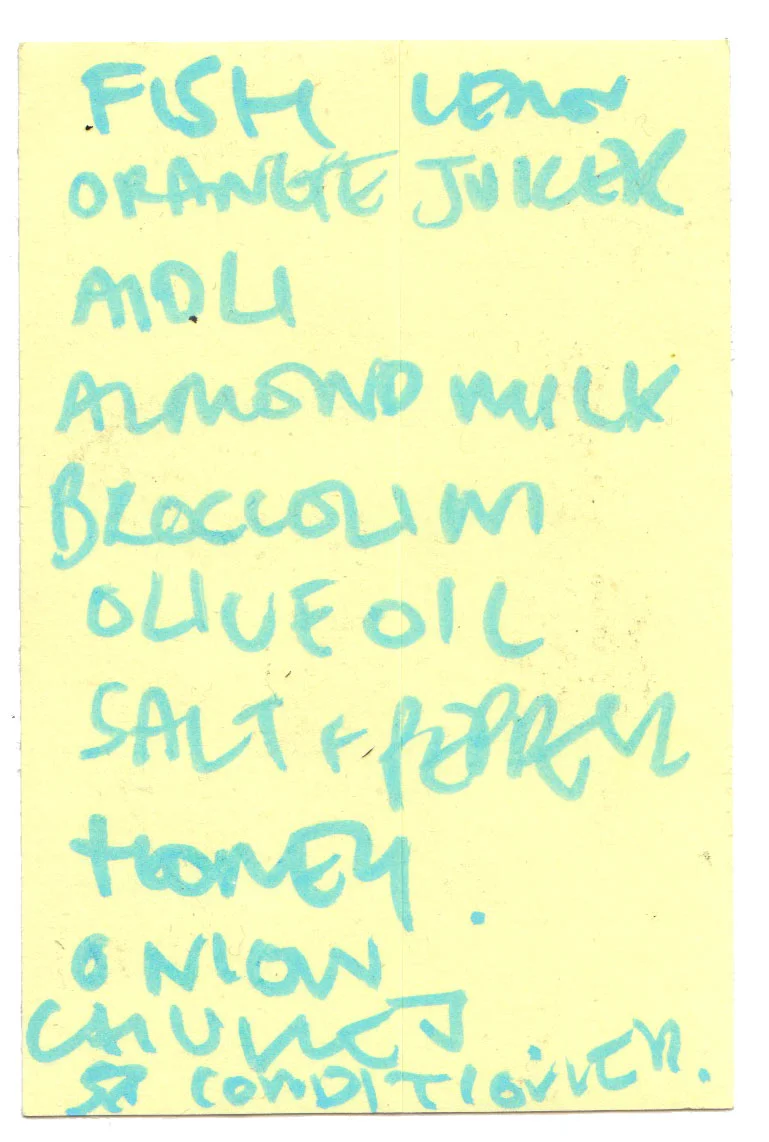 FISH LEMON
ORANGE JUICER
AIOLI
ALMOND MILK
BROCCOLINI
OLIVE OIL
SALT + PEPPER
HONEY.
ONION
CONDITIONER.